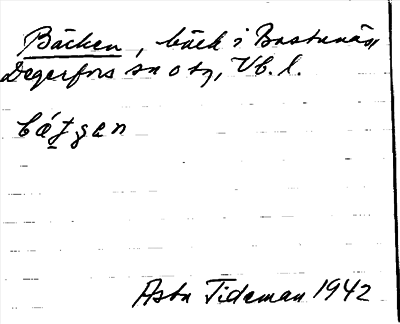 Bäcken, bäck i Bastunäs
Degerfors sn o tg, Vb. l.
Asta Tideman 1942